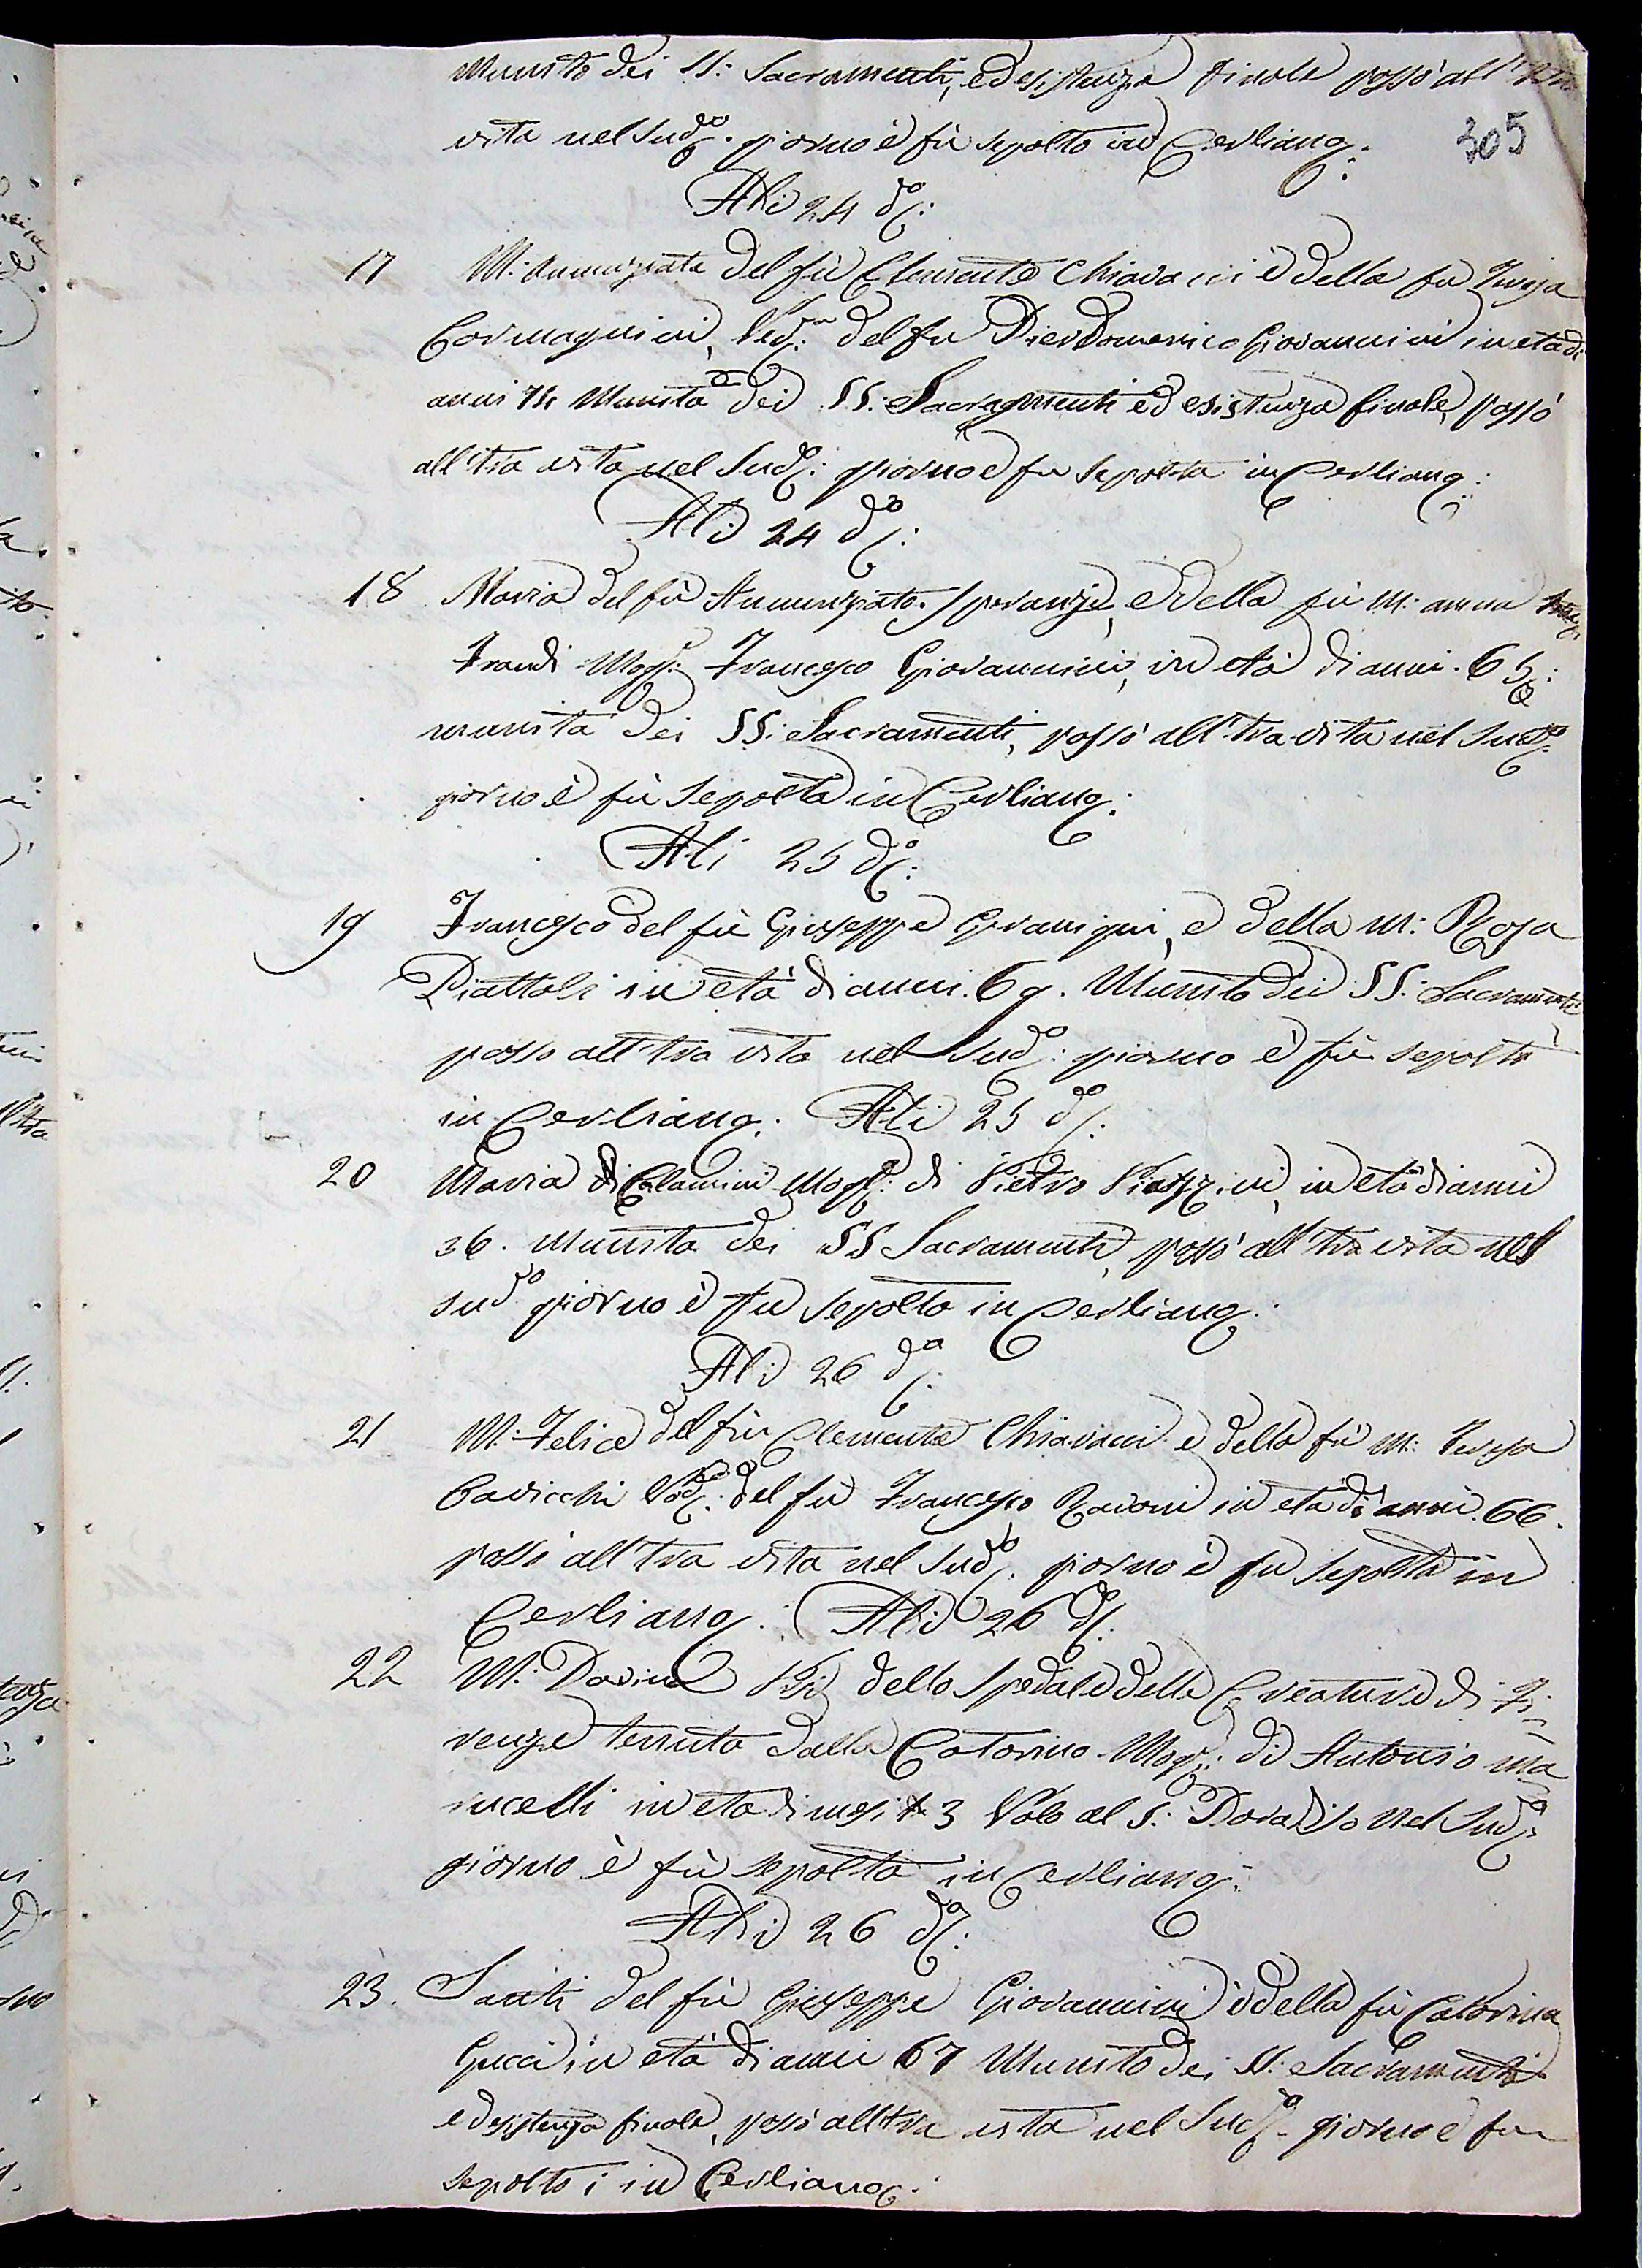 Munito dei SS: Sacramenti, ed esistenza finale passò all'
vita nel sud.o giorno è fù sepolto in Cerliano:
305
Alì 24 d.o:
17 M: Annunziata del fù Clemente Chiavacci è della fu Teresa
Cormagnini, Ved.a: del fu Pier Domenico Giovannini in età di
anni 74 Munita dei SS. Sacramenti ed esistenza finale, passò
all'tra vita nel sud.o: giorno è fu sepolta in Cerliano:
Alì 24 d.o:
18 Maria del fù Annunziato Speranzi, è della fù M: anna
Frandi Mogl: Francesco Giovannini, in età di anni. 65:
munita dei SS: Sacramenti, passò all'tra vita nel sud.o
giorno è fù sepolta in Cerliano:
Alì 25 d.o:
19 Francesco del fù Giuseppe e della M: Rosa
Piattoli in età di anni. 69. Munito dei SS: Sacramenti
passo all'tra vita nel sud.o: giorno è fù sepolto
in Cerliano: Alì 25 d.o:
20 Maria Calamini Mogl: di Pietro in età di anni
36. munita dei SS Sacramenti, passò all'tra vita nel
sud.o giorno è fu sepolto in Cerliano:
Alì 26 d.o:
21 M: Felice del fù Clemente Chiavacci è della fù M: Teresa
Cavicchi Ved.a: del fù Francesco in età di anni. 66.
passò all'tra vita nel sud.o giorno è fu sepolta in
Cerliano: Alì 26 d.o:
22 M: dello Spedale delle Creature di Fi=
renze tenuta dalla Catorina Mogl: di Antonio Ma=
rucelli in età di mesi 3 Volò al S: Paradiso nel sud.o
giorno è fù sepolta in Cerliano:
Alì 26 d.o:
23. Santi del fù Giuseppe Giovannini è della fù Catorina
Gucci in età di anni 67 Munito dei SS: Sacramenti
ed esistenza finale, passò all'tra vita nel sud.o giorno è fu
sepolto in Cerliano: